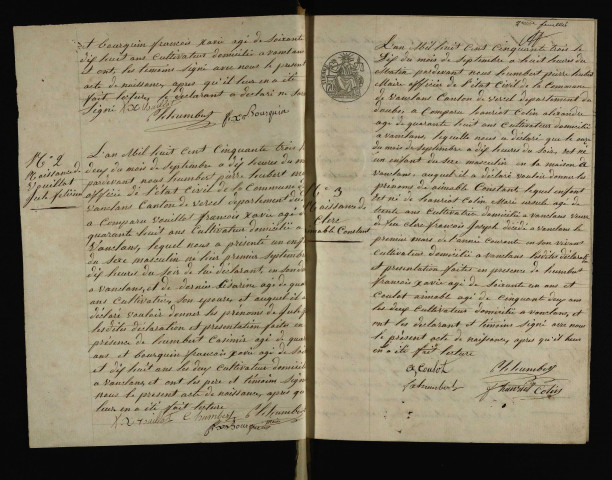 et bourquin françois xavié agé de soixante
dix huit ans Cultivateur domicilié a vauclans
et ont, les témoins signé avec nous le present
acte de naissance, apres qu'il leur en a été
fait lecture, le déclarant a declaré ne savoir
Signé
P h humbert fx Bourquin
N° 2
Naissance de
vouillot
L'an Mil huit Cent Cinquante trois le
deux du mois de Septembre a dix heures du matin
pardevant nous humbert pierre hubert maire
officier de l'état Civil de la Commune de
vauclans Canton de vercel departement du
a Comparu vouillot francois xavié agé de
quarante huit ans Cultivateur domicilié a
vauclans, lequel nous a présenté un enfant
du sexe masculin né hier premier Septembre
dix heures du Soir de lui déclarant, en sa maison
a vauclans, et de agé de
ans Cultivatrice, son epouse, et auquel il a
déclaré vouloir donner les prénoms de
lesdites déclaration et présentation faites en
présence de humbert Casimir agé de
ans et bourquin françois xavié agé de
et dix huit ans les deux Cultivateurs domiciliés
a vauclans, et ont les pere et témoins signé
nous le present acte de naissance, apres qu'il
leur en a été fait lecture
humbert P h humbert
fx Bourquin
2eme feuillet
N° 3
Naissance de
Clerc
aimable Constant
L'an Mil huit Cent Cinquante trois le
Six du mois de Septembre a huit heures du
Matin pardevant nous humbert pierre hubert
Maire officier de l'état Civil de la Commune
de vauclans Canton de vercel departement du
doubs a Comparu henriot Colin alexandre
agé de quarante huit ans Cultivateur domicilié
a vauclans, lequel nous a déclaré que le
du mois de Septembre a dix heures du soir est né
un enfant du sexe masculin en sa maison a
vauclans auquel il a déclaré vouloir donner les
prenoms de aimable Constant lequel enfant
est né de henriot Colin Marie agé de
trente ans Cultivatrice domiciliée a vauclans veuve
de feu Clerc françois Joseph décédé a vauclans le
premier mars de l'année Courante en son vivant
Cultivateur domicilié a vauclans lesdites déclaration
et présentation faites en presence de humbert
françois xavié agé de Soixante un ans et
Coulot aimable agé de Cinquante deux ans
les deux Cultivateurs domiciliés a vauclans, et
ont les declarant et témoins Signé avec nous
le present acte de naissance, apres qu'il leur
en a été fait lecture
a Coulot P h humbert
humbert henriot Colin